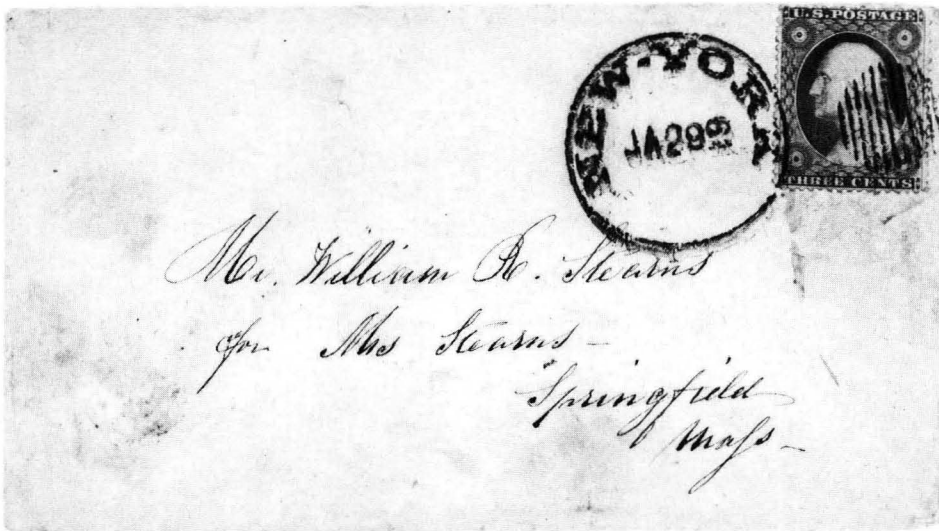 U.S. POSTAGE
THREE CENTS
NEW-YORK
JA 29
Mr. William R. Stearns
for Mrs Stearns –
Springfield
Mass –